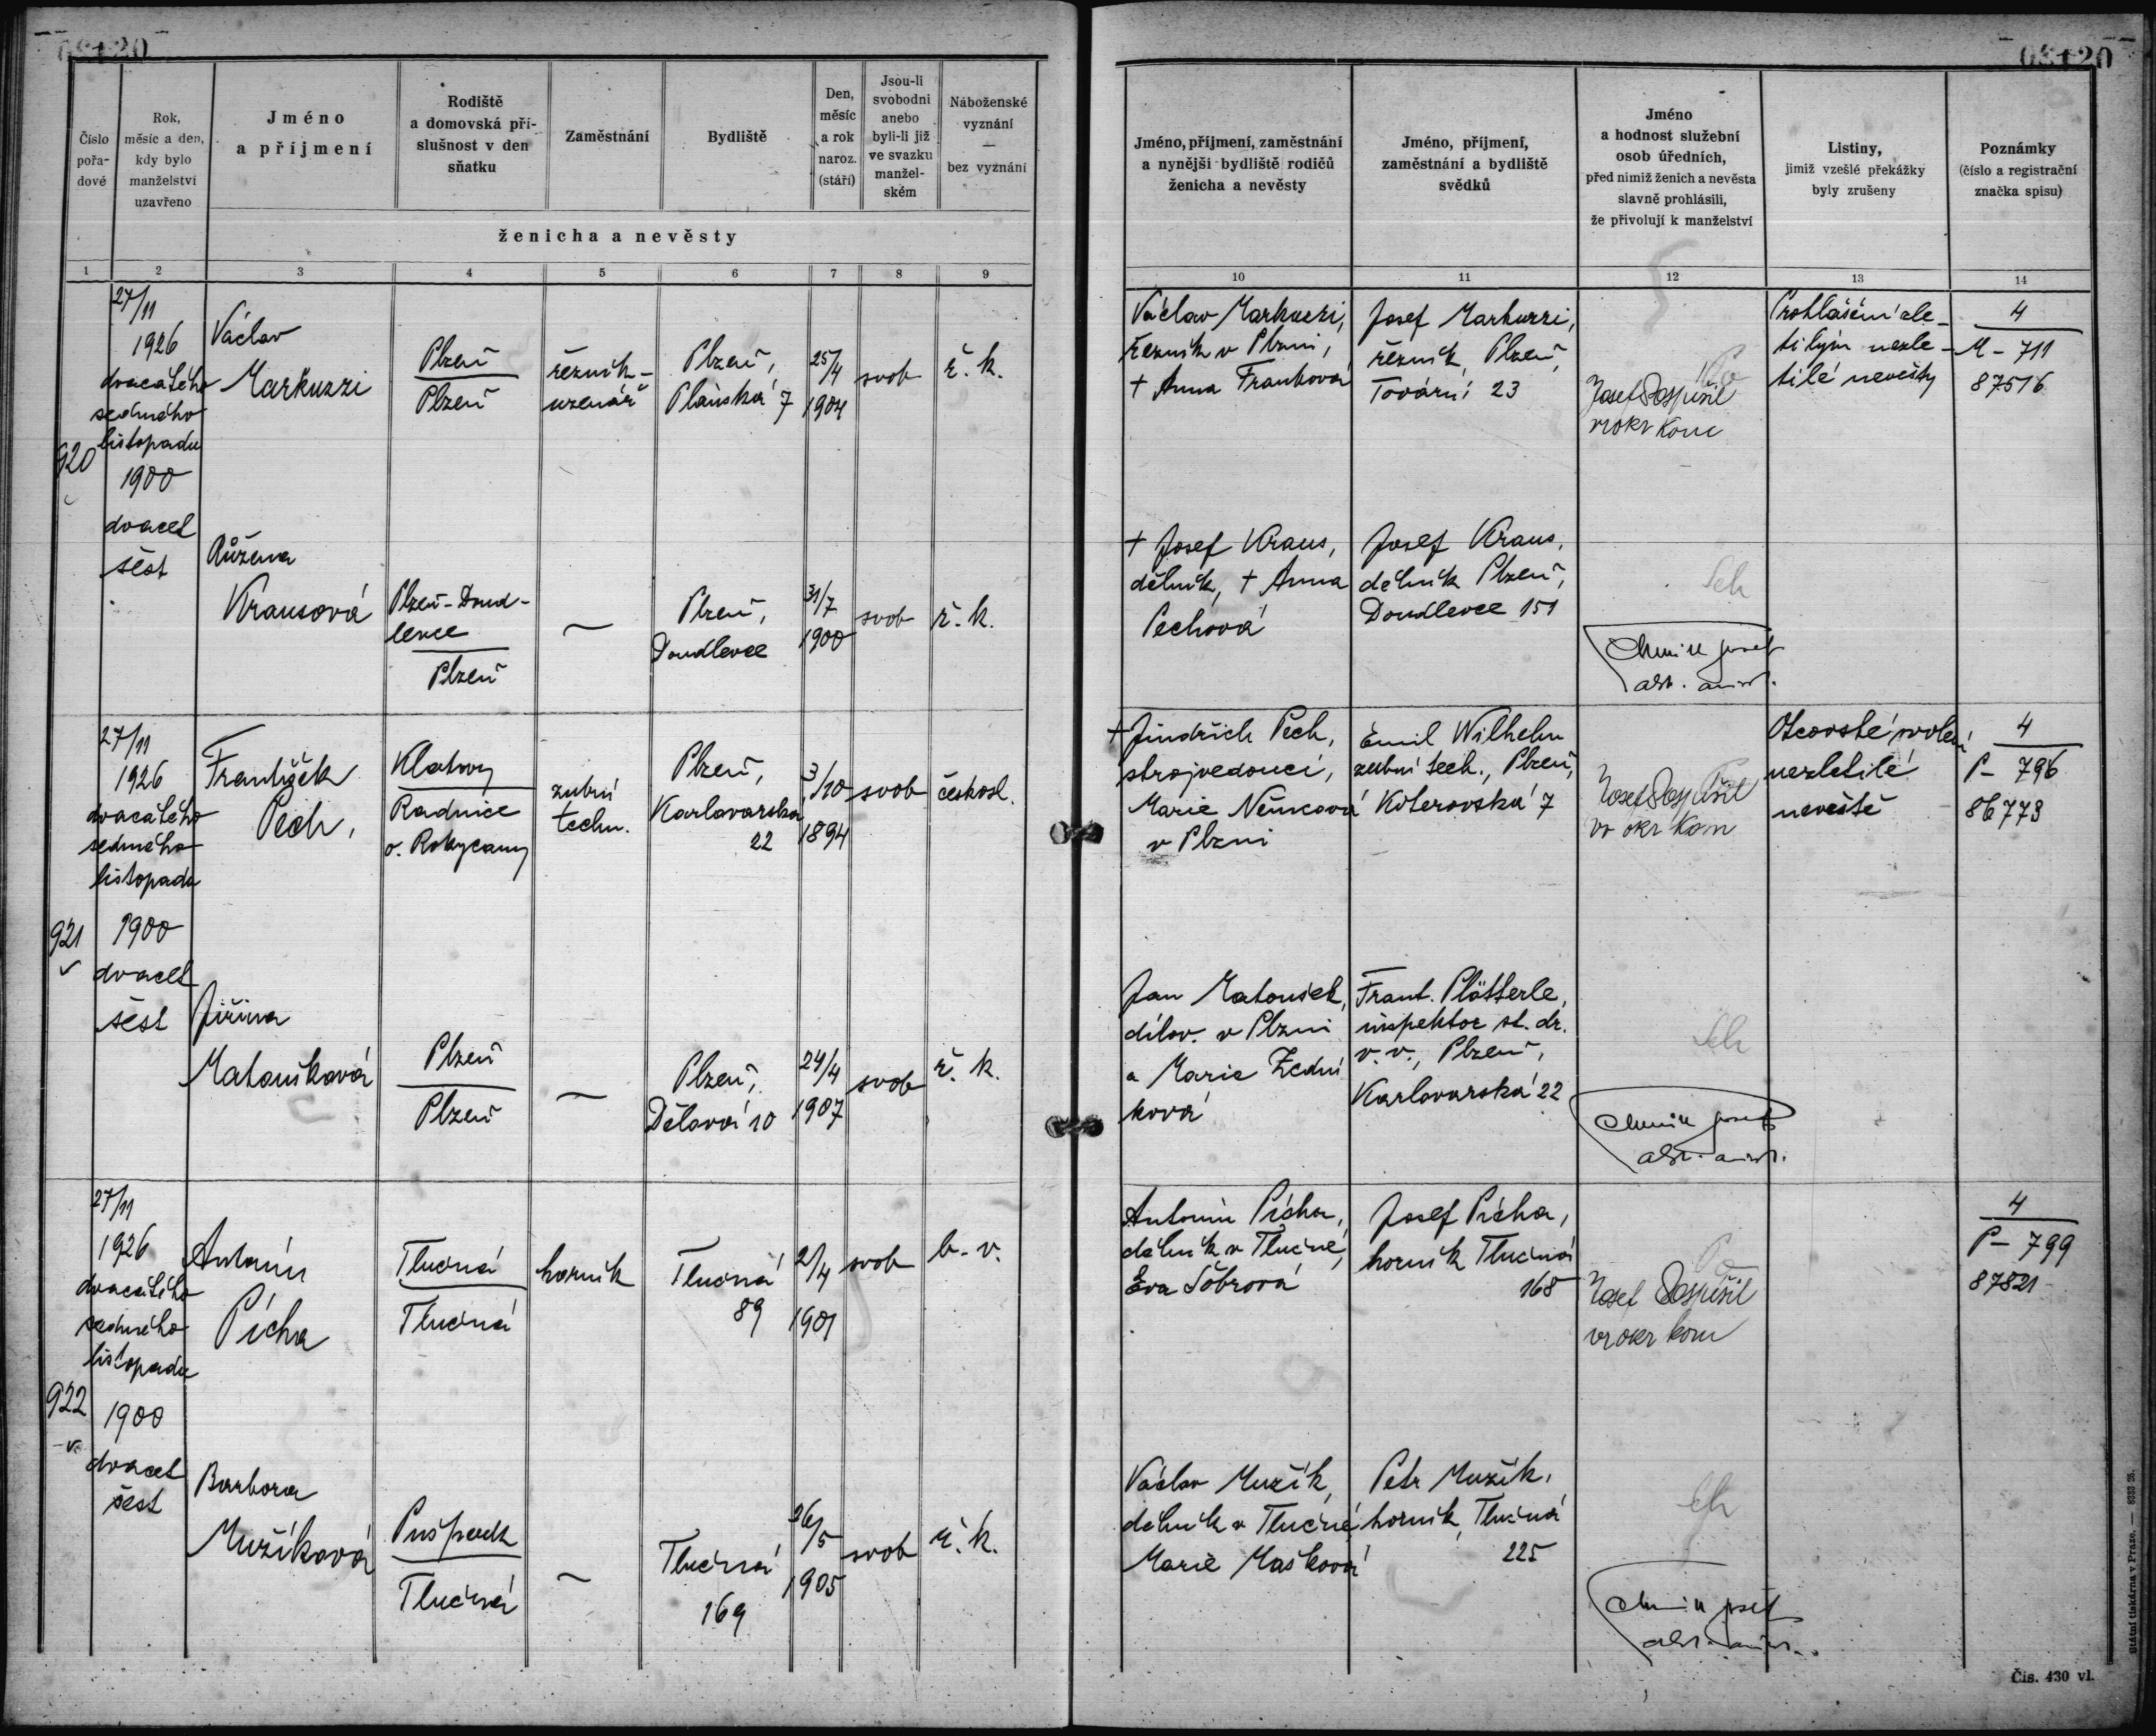 Číslo pořa- dové
Rok, měsíc a den, kdy bylo manželství uzavřeno
Jméno a příjmení
Rodiště a domovská pří- slušnost v den sňatku
Zaměstnání
Bydliště
Den, měsíc a rok naroz. (stáří)
Jsou-li svobodni anebo byli-li již ve svazku manžel- ském
Náboženské vyznání — bez vyznání
ženicha a nevěsty
Jméno, příjmení, zaměstnání a nynější bydliště rodičů ženicha a nevěsty
Jméno, příjmení, zaměstnání a bydliště svědků
Jméno a hodnost služební osob úředních, před nimiž ženich a nevěsta slavně prohlásili, že přivolují k manželství
Listiny, jimiž vzešlé překážky byly zrušeny
Poznámky (číslo a registrační značka spisu)
1 2 3 4 5 6 7 8 9 10 11 12 13 14
920
27/11
1926
dvacátého
sedmého
listopadu
1900
dvacet
šest
Václav
Markuzzi
Plzeň
Plzeň
řezník-
uzenář
Plzeň,
Plánská 7
25/4
1904
svob
ř. k.
Václav Markuzzi,
řezník v Plzni,
+ Anna Franková
Josef Markuzzi,
řezník, Plzeň,
Tovární 23
Josef Pospíšil
v okr kom
Prohlášení zle-
tilým nezle-
tilé nevěsty
4
M - 711
87516
Růžena
Krausová
Plzeň-Doud-
levce
Plzeň
—
Plzeň,
Doudlevce
31/7
1900
svob
ř. k.
+ Josef Kraus,
dělník, + Anna
Pechová
Josef Kraus,
dělník Plzeň,
Doudlevce 151
Sch
921
27/11
1926
dvacátého
sedmého
listopadu
1900
dvacet
šest
František
Pech,
Klatovy
Radnice
o. Rokycany
zubní
techn.
Plzeň,
Karlovarská
22
3/10
1894
svob
českosl.
+ Jindřich Pech,
strojvedoucí,
Marie Němcová
v Plzni
Emil Wilhelm
zubní tech., Plzeň,
Koterovská 7
Josef Pospíšil
v okr kom
Otcovské svolení
nezletilé
nevěstě
4
P - 796
86773
Jiřina
Matoušková
Plzeň
Plzeň
—
Plzeň,
Dělová 10
24/4
1907
svob
ř. k.
Jan Matoušek,
dílov. v Plzni
a Marie Zední
ková
Frant. Plötterle,
inspektor st. dr.
v. v., Plzeň,
Karlovarská 22
Sch
922
27/11
1926
dvacátého
sedmého
listopadu
1900
dvacet
šest
Antonín
Pícha
Tlučná
Tlučná
horník
Tlučná
89
2/4
1901
svob
b. v.
Antonín Pícha,
dělník v Tlučné,
Eva Šobrová
Josef Pícha,
horník Tlučná
168
Josef Pospíšil
v okr kom
4
P - 799
87821
Barbora
Mužíková
Tlučná
—
Tlučná
169
26/5
1905
svob
ř. k.
Václav Mužík,
dělník v Tlučné
Marie Mašková
Petr Mužík,
horník, Tlučná
225
Sch
Čís. 430 vl.
Státní tiskárna v Praze.